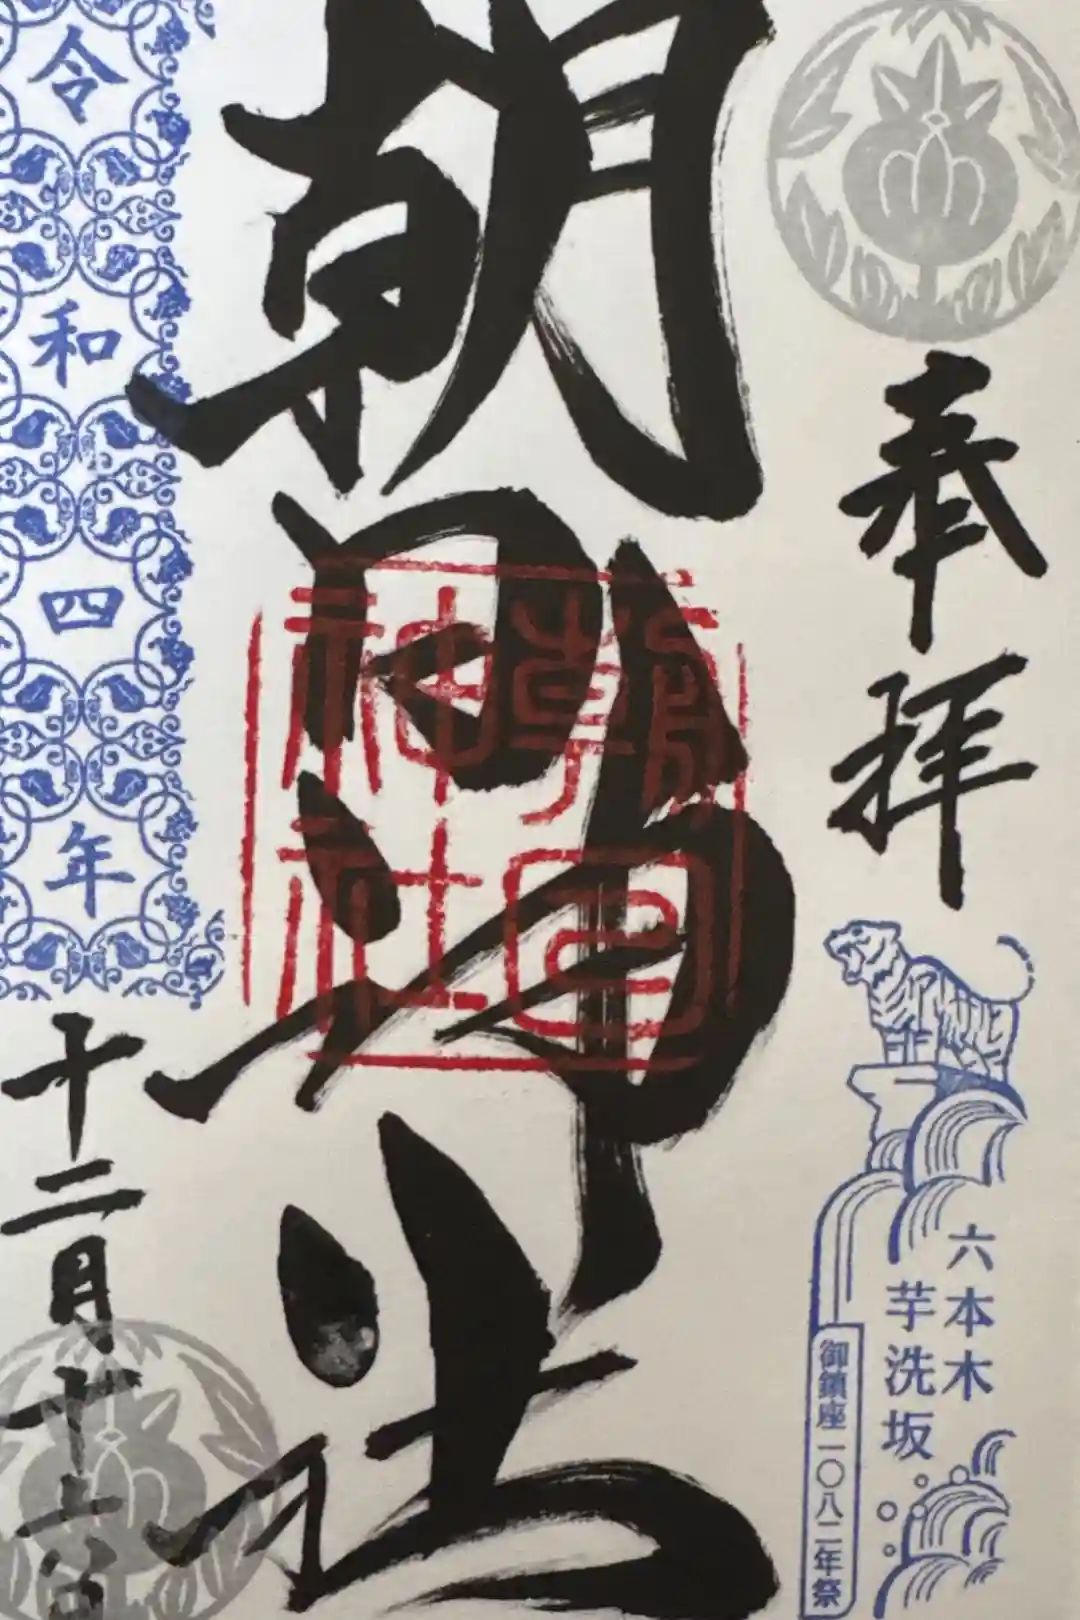 奉拝
六本木
芋洗坂
御鎮座一〇八二年祭
朝日神社
朝日神社
令和四年
十二月十七日